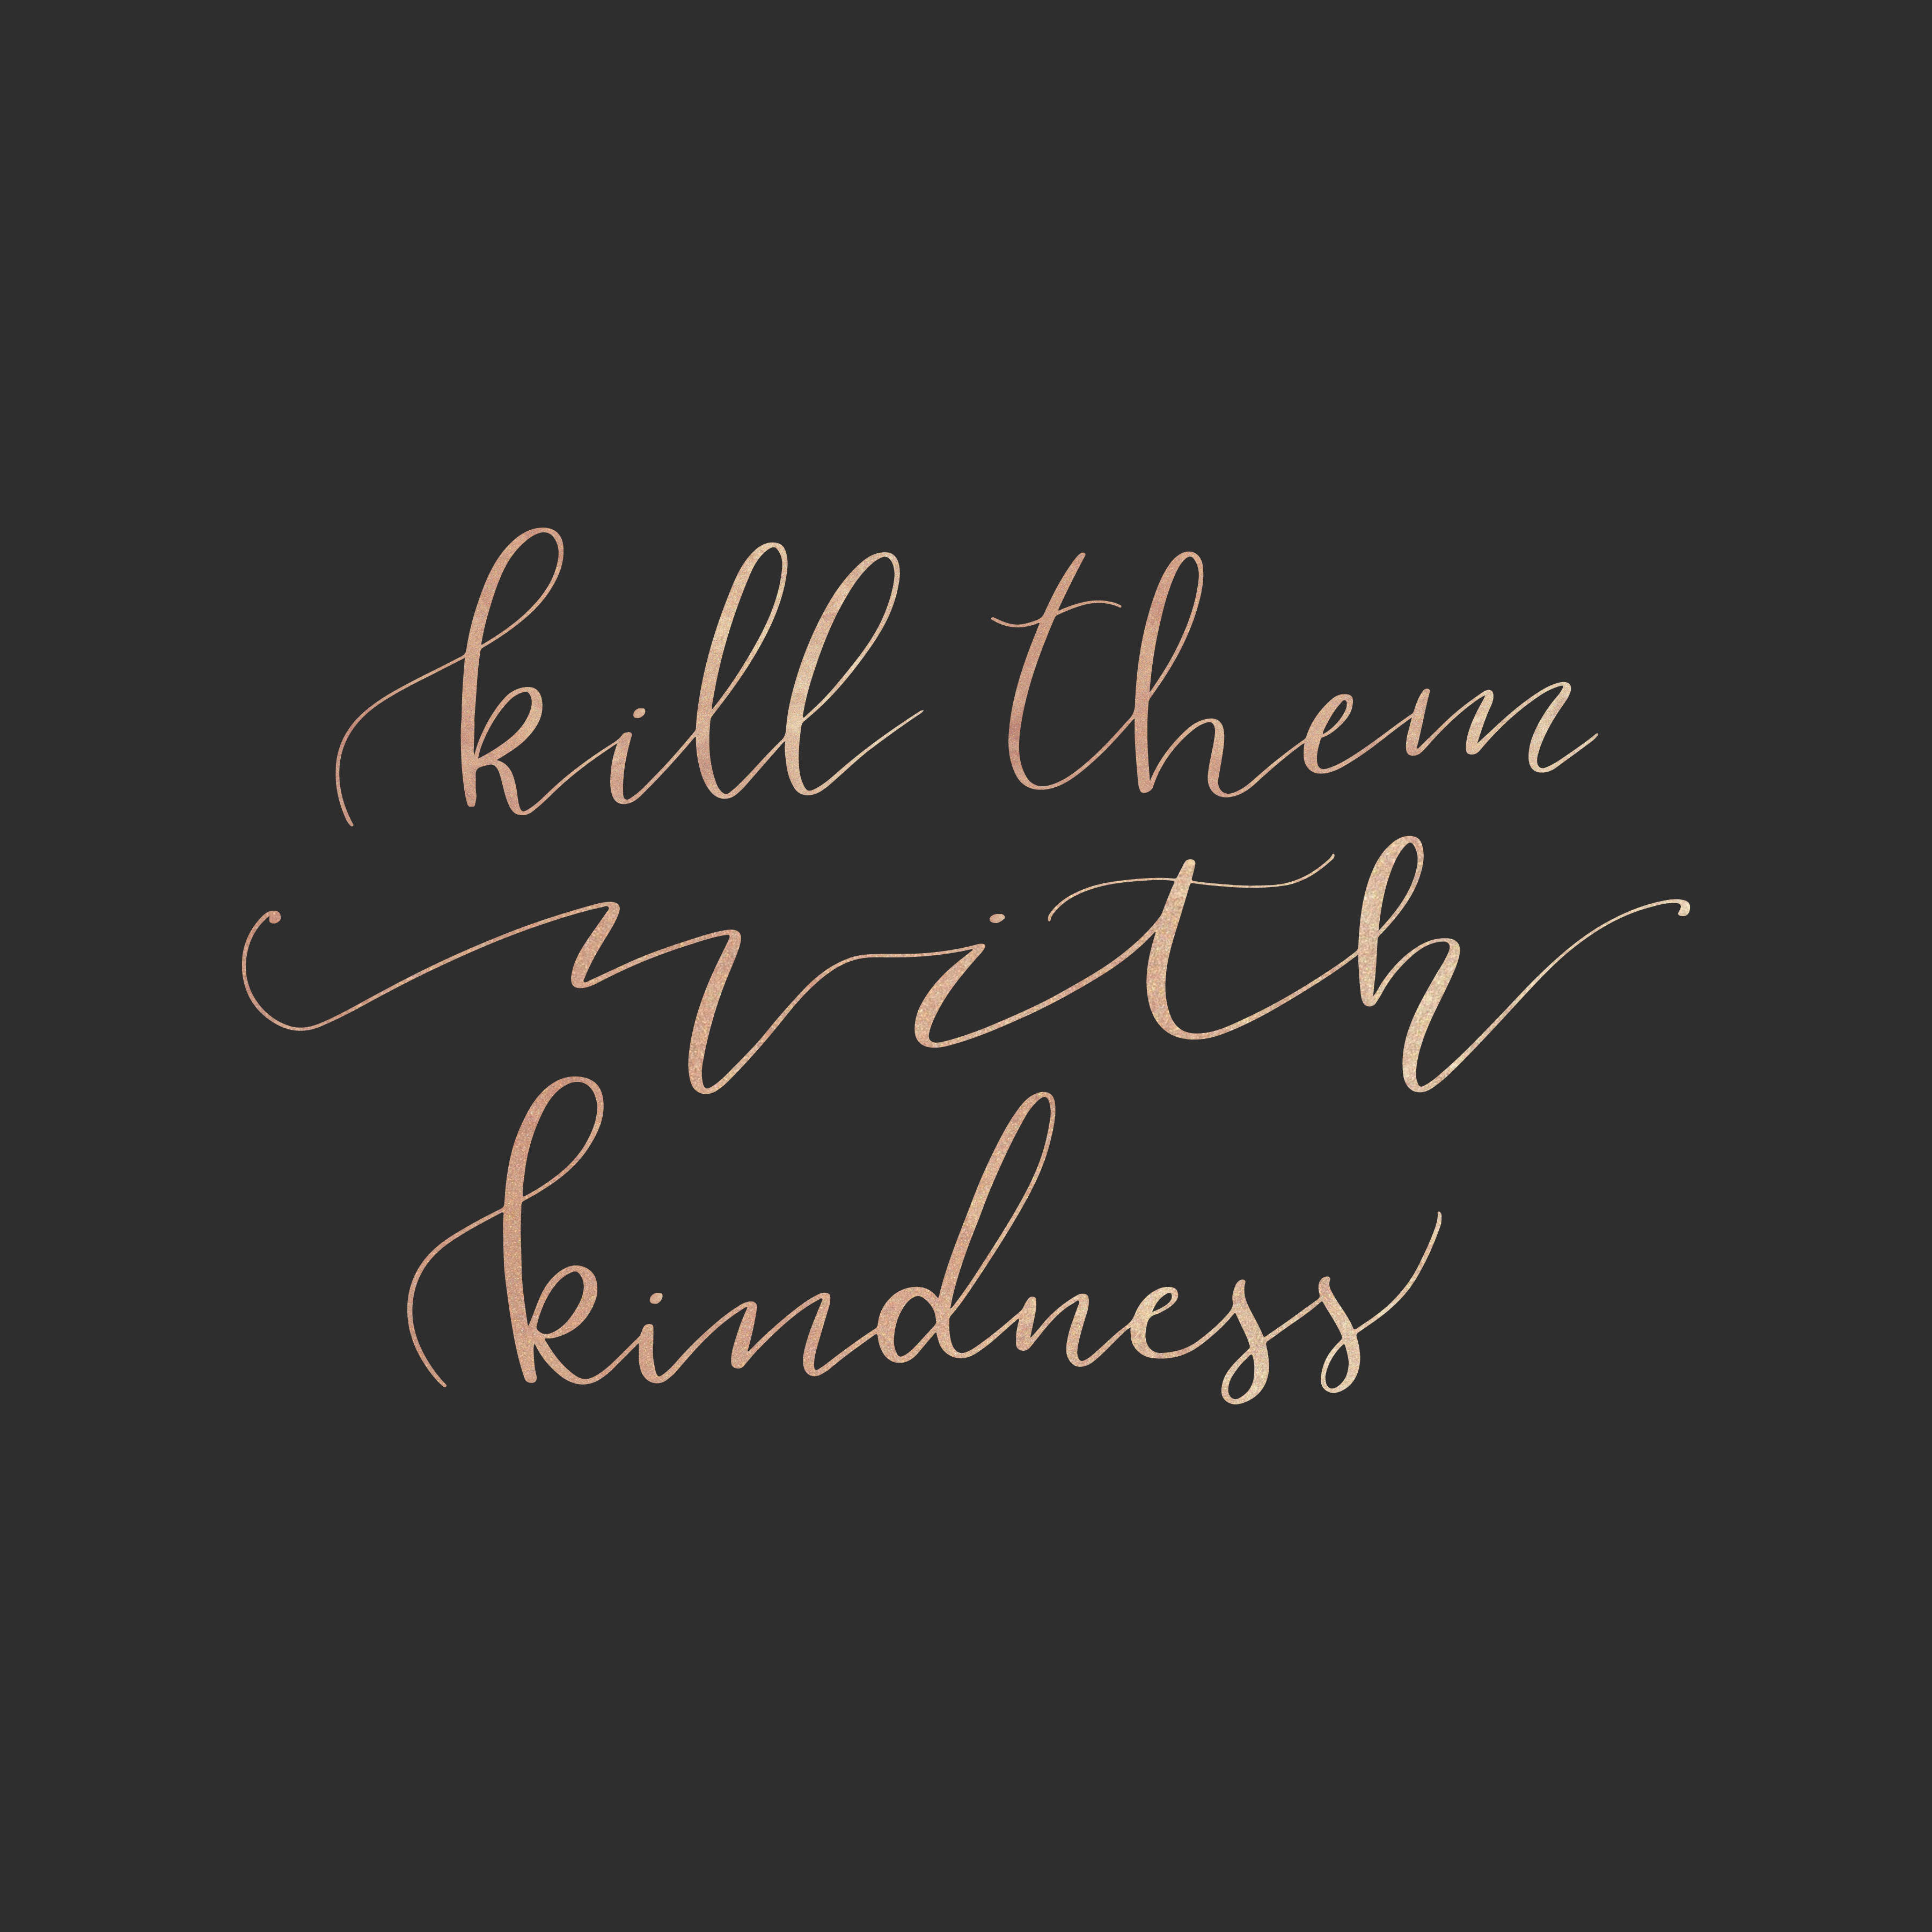 kill them
with
kindness